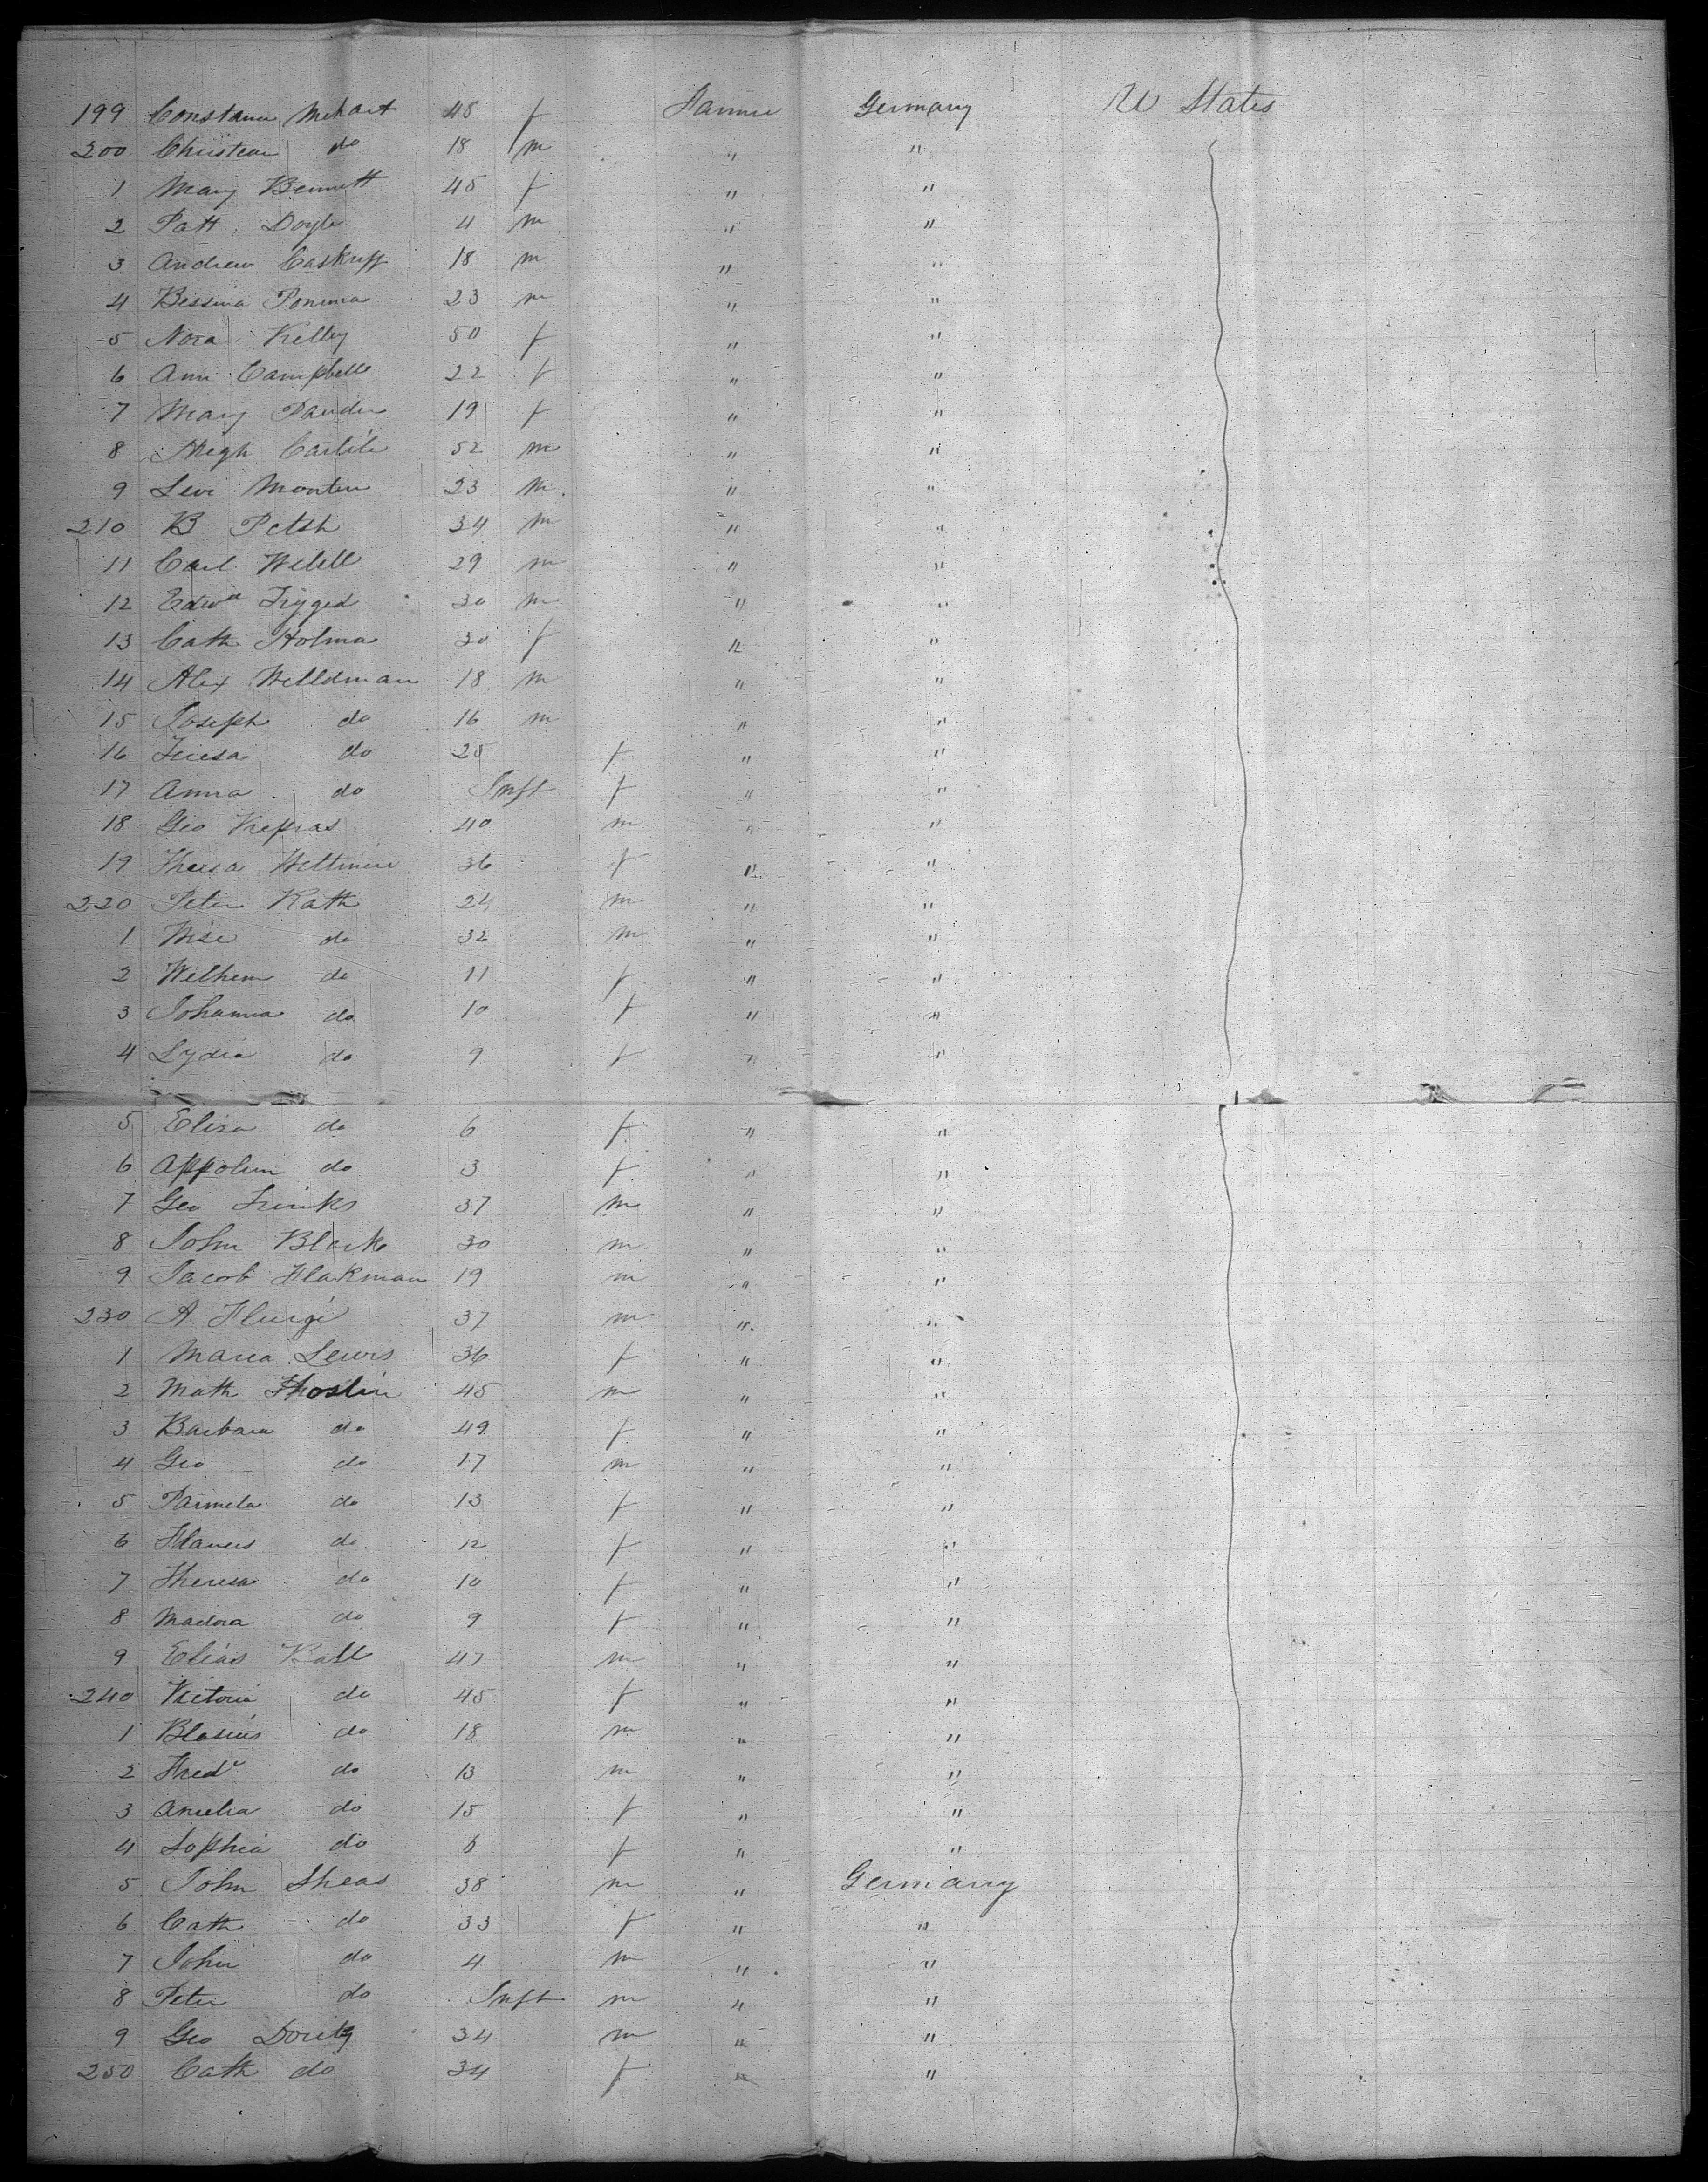 199 Constance Mehart 48 f Farmer Germany U States
200 Christian do 18 m " "
1 Mary Bennett 45 f " "
2 Patt Doyle 4 m " "
3 Andrew m " " 18
4 Bessina Ponima 23 m " "
5 Nora Kelley 50 f " "
6 Ann Campbell 22 f " "
7 Mary 19 f " "
8 Hugh Carlile 52 m " "
9 Levi Monten 23 m " "
210 B Petsh 34 m " "
11 Carl Welell 29 m " "
12 Edwd Tryged 30 m " "
13 Cath Holma 30 f " "
14 Alex Welldman 18 m " "
15 Joseph do 16 m " "
16 Teresa do 25 f " "
17 Anna do Inft f " "
18 Geo Krepras 40 m " "
19 Theresa 36 f " "
220 Peter Rath 24 m " "
1 Wise do 32 m " "
2 Wilhem do 11 f " "
3 Johanna do 10 f " "
4 Lydia do 9 f " "
5 Elisa do 6 f " "
6 Appolun do 3 f " "
7 Geo Trinks 37 m " "
8 John Black 30 m " "
9 Jacob Flakman 19 m " "
230 A Flurgi 37 m " "
1 Maria Lewis 36 f " "
2 Math Thoslin 45 m " "
3 Barbara do 49 f " "
4 Geo do 17 m " "
5 Parmela do 13 f " "
6 do 12 f " "
7 Theresa do 10 f " "
8 Madora do 9 f " "
9 Elias Ball 47 m " "
240 Victoria do 45 f " "
1 Blasius do 18 m " "
2 Fredk do 13 m " "
3 Amelia do 15 f " "
4 Sophia do 6 f " "
5 John Sheas 38 m " Germany
6 Cath do 33 f " "
7 John do 4 m " "
8 Peter do Inft m " "
9 Geo Doretz 34 m " "
250 Cath do 34 f " "